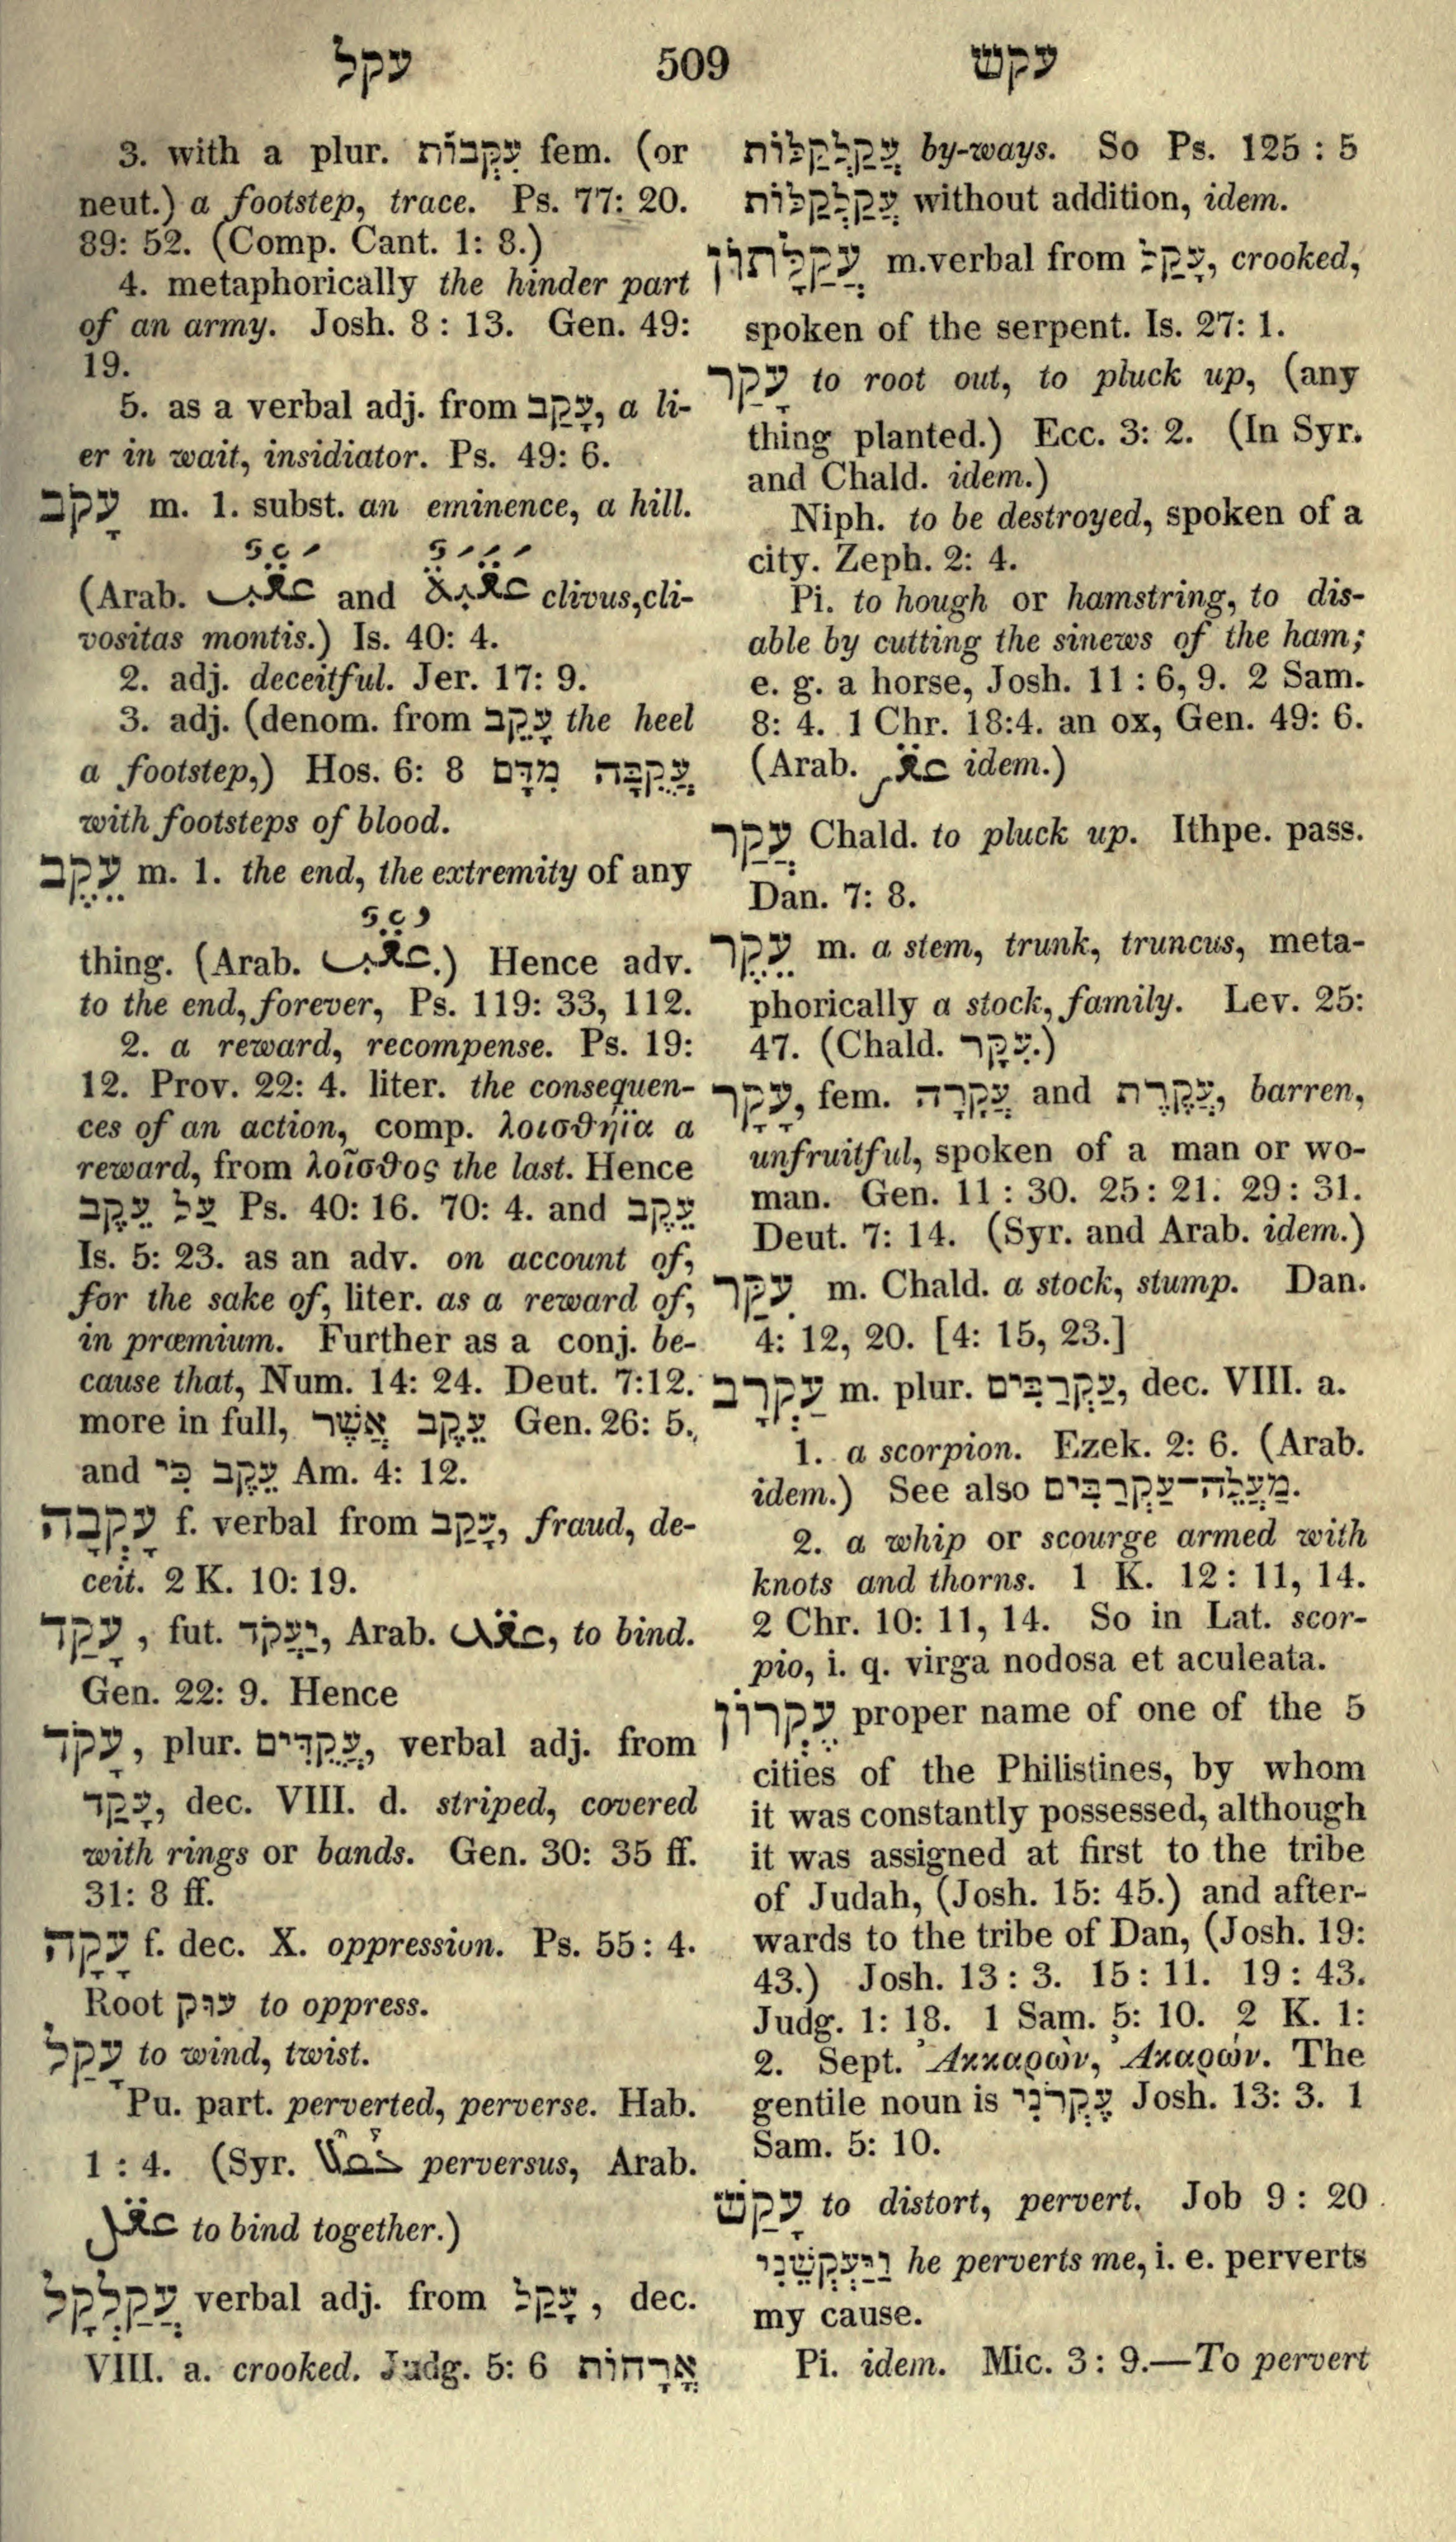 עקל 509 עקש
3. with a plur. עִקְּבוֹת fem. (or
neut.) a footstep, trace. Ps. 77: 20.
89: 52. (Comp. Cant. 1: 8.)
4. metaphorically the hinder part
of an army. Josh. 8 : 13. Gen. 49:
19.
5. as a verbal adj. from עָקַב, a li-
er in wait, insidiator. Ps. 49: 6.
עָקֹב m. 1. subst. an eminence, a hill.
(Arab. عَقْبٌ and عَقَبَةٌ clivus,cli-
vositas montis.) Is. 40: 4.
2. adj. deceitful. Jer. 17: 9.
3. adj. (denom. from עָקֵב the heel
a footstep,) Hos. 6: 8 עֲקֻבָּה מִדָּם
with footsteps of blood.
עֵקֶב m. 1. the end, the extremity of any
thing. (Arab. عُقْبٌ.) Hence adv.
to the end, forever, Ps. 119: 33, 112.
2. a reward, recompense. Ps. 19:
12. Prov. 22: 4. liter. the consequen-
ces of an action, comp. λοισθήϊα a
reward, from λοῖσθος the last. Hence
עַל עֵקֶב Ps. 40: 16. 70: 4. and עֵקֶב
Is. 5: 23. as an adv. on account of,
for the sake of, liter. as a reward of,
in præmium. Further as a conj. be-
cause that, Num. 14: 24. Deut. 7:12.
more in full, עֵקֶב אֲשֶׁר Gen. 26: 5.,
and עֵקֶב כִּי Am. 4: 12.
עָקְבָה f. verbal from עָקַב, fraud, de-
ceit. 2 K. 10: 19.
עָקַד, fut. יַעֲקֹד, Arab. عقد, to bind.
Gen. 22: 9. Hence
עָקֹד, plur. עֲקֻדִּים, verbal adj. from
עָקַד, dec. VIII. d. striped, covered
with rings or bands. Gen. 30: 35 ff.
31: 8 ff.
עָקָה f. dec. X. oppression. Ps. 55: 4.
Root עוּק to oppress.
עָקַל to wind, twist.
Pu. part. perverted, perverse. Hab.
1 : 4. (Syr. perversus, Arab.
عقل to bind together.)
עֲקַלְקַל verbal adj. from עָקַל, dec.
VIII. a. crooked. Judg. 5: 6 אֳרָחוֹת
עֲקַלְקַלּוֹת by-ways. So Ps. 125 : 5
עֲקַלְקַלּוֹת without addition, idem.
עֲקַלָּתוֹן m.verbal from עָקַל, crooked,
spoken of the serpent. Is. 27: 1.
עָקַר to root out, to pluck up, (any
thing planted.) Ecc. 3: 2. (In Syr.
and Chald. idem.)
Niph. to be destroyed, spoken of a
city. Zeph. 2: 4.
Pi. to hough or hamstring, to dis-
able by cutting the sinews of the ham;
e. g. a horse, Josh. 11 : 6, 9. 2 Sam.
8: 4. 1 Chr. 18:4. an ox, Gen. 49: 6.
(Arab. عقر idem.)
עֲקַר Chald. to pluck up. Ithpe. pass.
Dan. 7: 8.
עֵקֶר m. a stem, trunk, truncus, meta-
phorically a stock, family. Lev. 25:
47. (Chald. עִקָּר.)
עָקָר, fem. עֲקָרָה and עֲקֶרֶת, barren,
unfruitful, spoken of a man or wo-
man. Gen. 11 : 30. 25: 21. 29: 31.
Deut. 7: 14. (Syr. and Arab. idem.)
עִקַּר m. Chald. a stock, stump. Dan.
4: 12, 20. [4: 15, 23.]
עַקְרָב m. plur. עַקְרַבִּים, dec. VIII. a.
1. a scorpion. Ezek. 2: 6. (Arab.
idem.) See also מַעֲלֵה־עַקְרַבִּים.
2. a whip or scourge armed with
knots and thorns. 1 K. 12: 11, 14.
2 Chr. 10: 11, 14. So in Lat. scor-
pio, i. q. virga nodosa et aculeata.
עֶקְרוֹן proper name of one of the 5
cities of the Philistines, by whom
it was constantly possessed, although
it was assigned at first to the tribe
of Judah, (Josh. 15: 45.) and after-
wards to the tribe of Dan, (Josh. 19:
43.) Josh. 13 : 3. 15: 11. 19: 43.
Judg. 1: 18. 1 Sam. 5: 10. 2 K. 1:
2. Sept. Ἀκκαρὼν, Ἀκαρών. The
gentile noun is עֶקְרֹנִי Josh. 13: 3. 1
Sam. 5: 10.
עָקַשׁ to distort, pervert. Job 9 : 20
וַיַּעְקְשֵׁנִי he perverts me, i. e. perverts
my cause.
Pi. idem. Mic. 3: 9.—To pervert